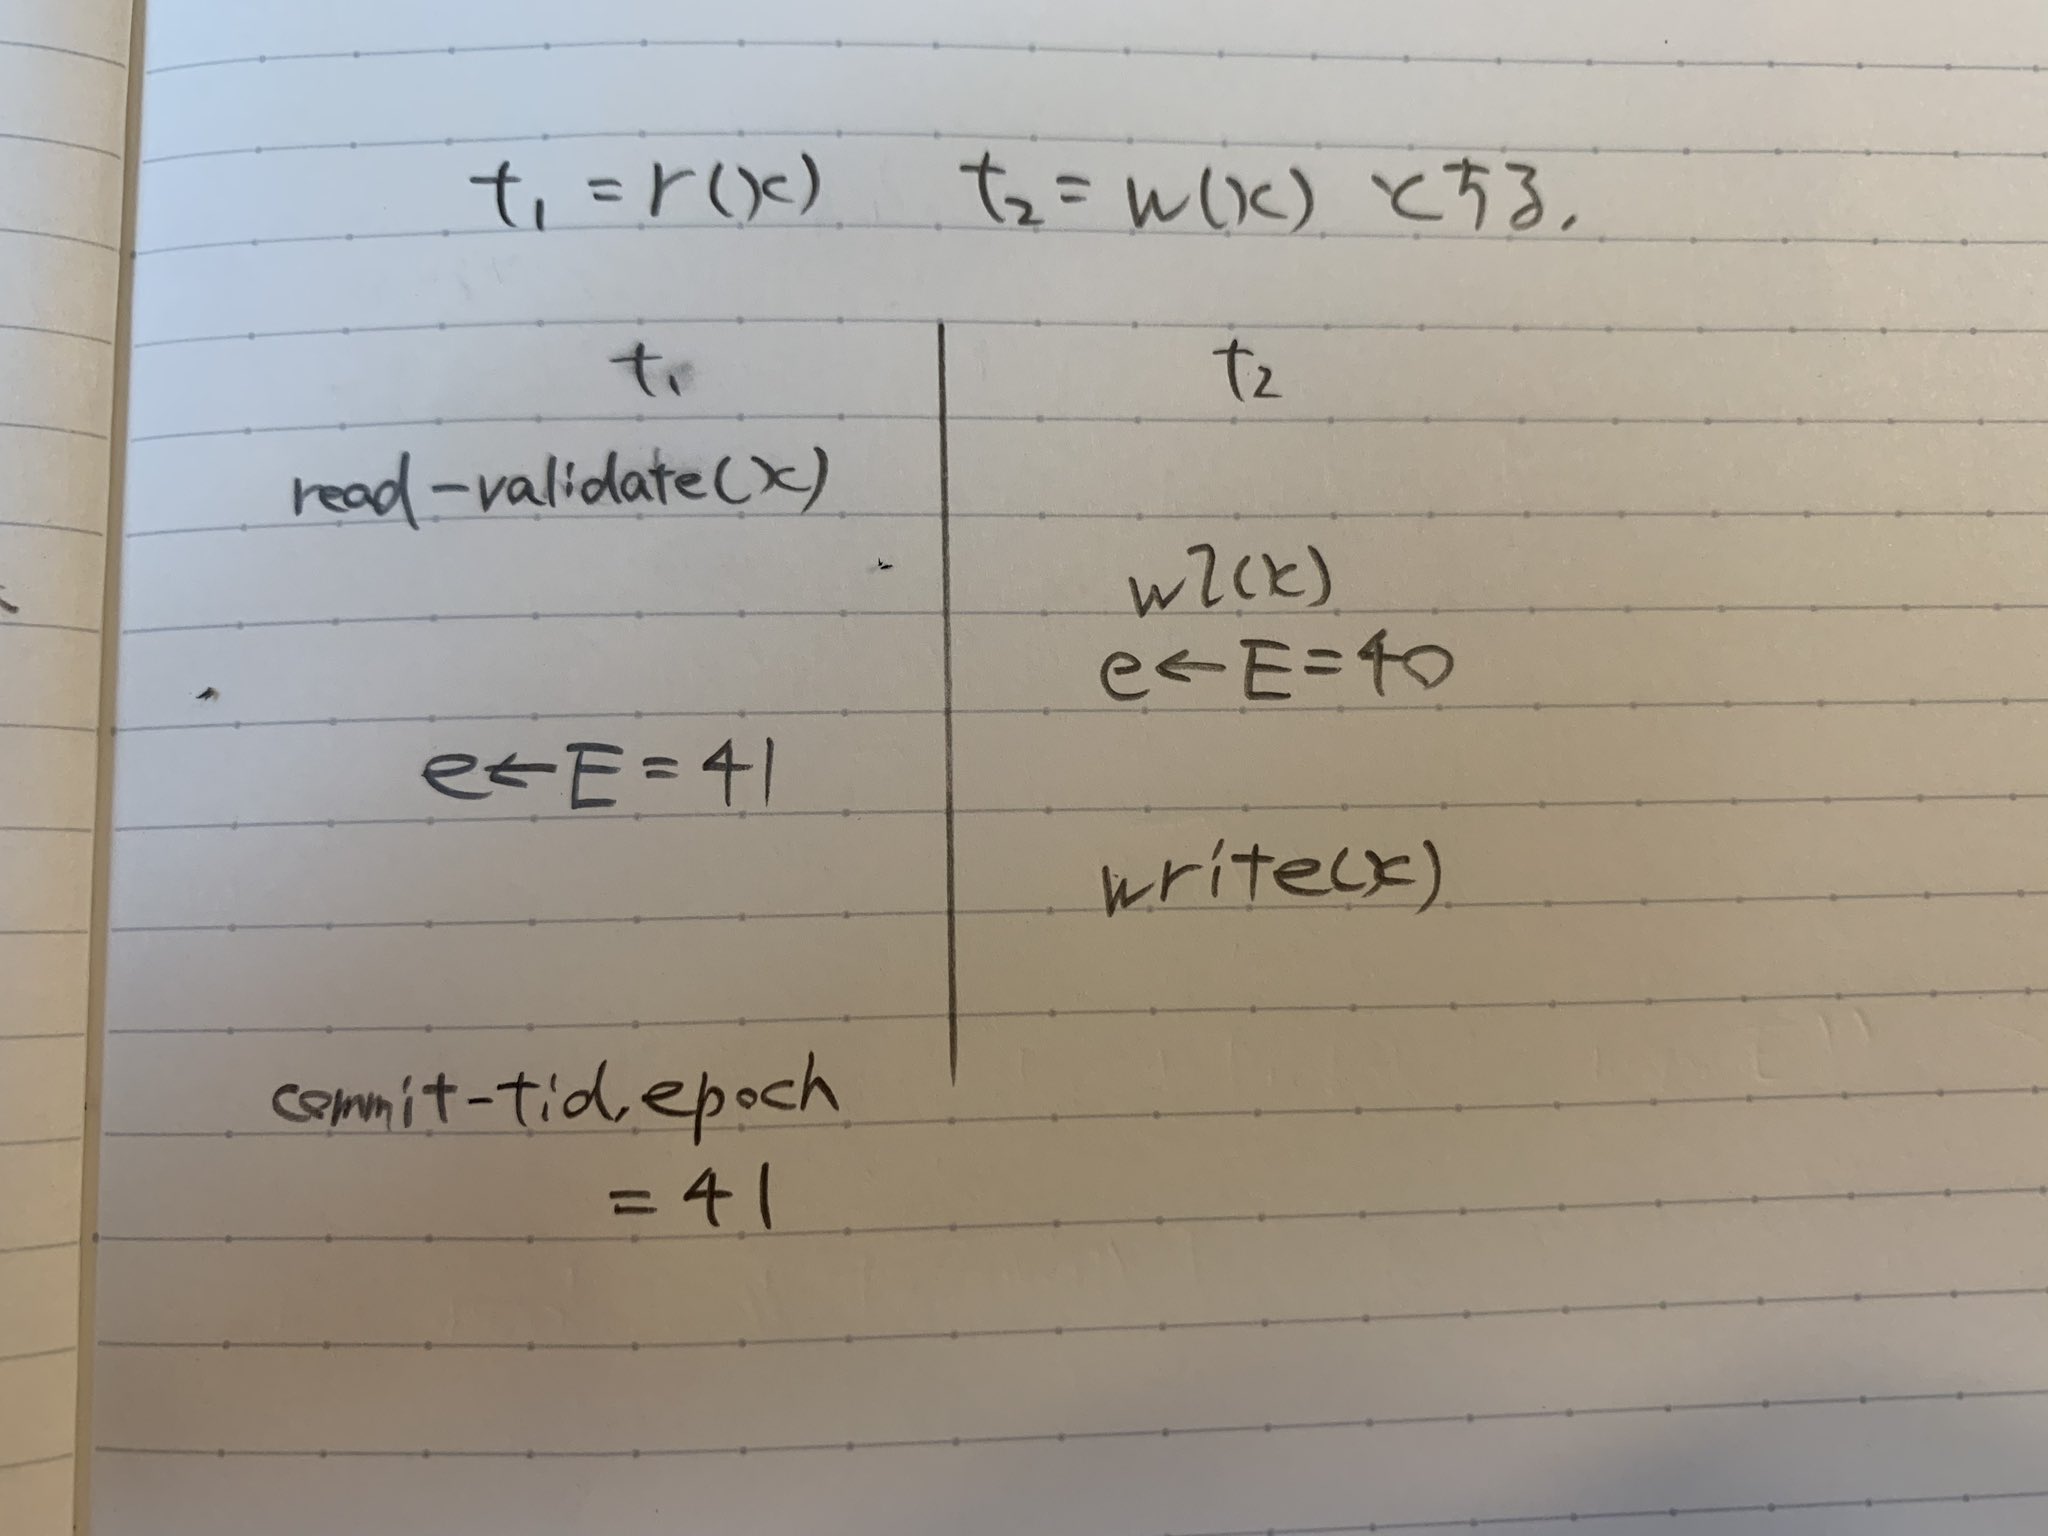 t₁ = r(x) t₂ = w(x) とする.
t₁ t₂
read-validate(x)
wl(x)
e ← E = 40
e ← E = 41
write(x)
commit-tid.epoch
= 41